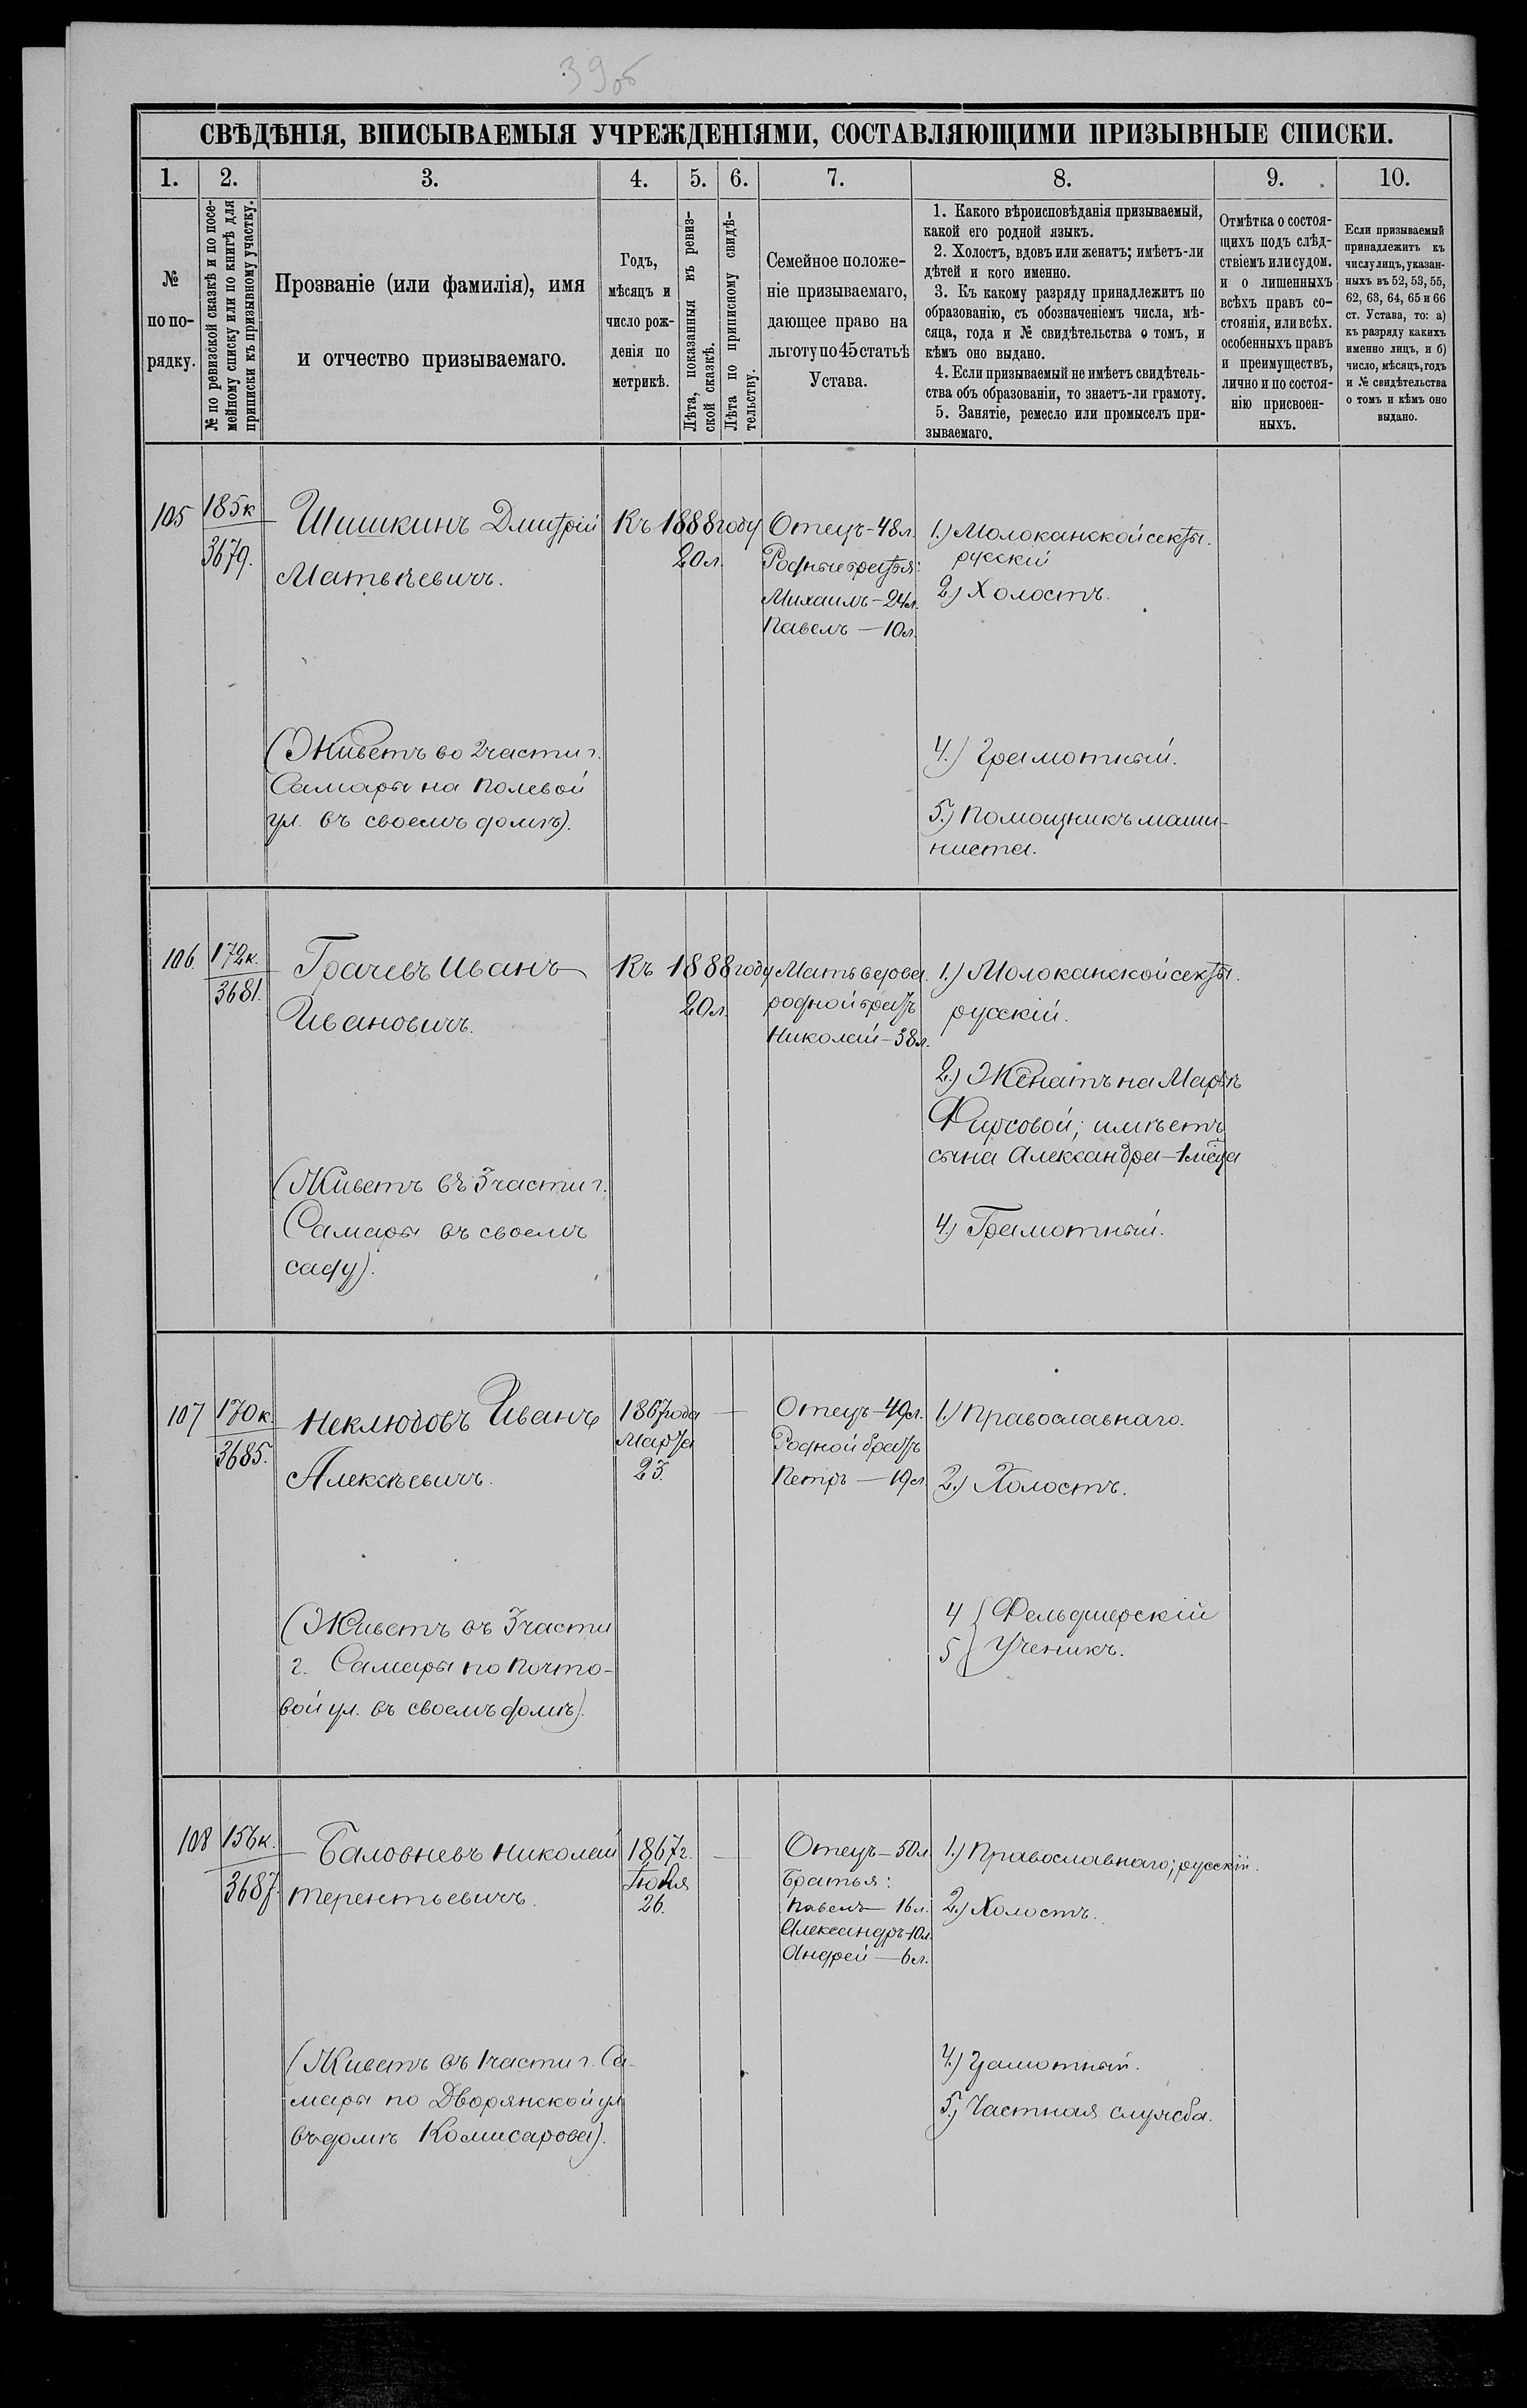 39 об
СВѢДѢНІЯ, ВПИСЫВАЕМЫЯ УЧРЕЖДЕНІЯМИ, СОСТАВЛЯЮЩИМИ ПРИЗЫВНЫЕ СПИСКИ.
1. 2. 3. 4. 5. 6. 7. 8. 9. 10.
№
по по-
рядку.
№ по ревизской сказкѣ и по посе-
мейному списку или по книгѣ для
приписки къ призывному участку.
Прозваніе (или фамилія), имя
и отчество призываемаго.
Годъ,
мѣсяцъ и
число рож-
денія по
метрикѣ.
Лѣта, показанныя въ ревиз-
ской сказкѣ.
Лѣта по приписному свидѣ-
тельству.
Семейное положе-
ніе призываемаго,
дающее право на
льготу по 45 статьѣ
Устава.
1. Какого вѣроисповѣданія призываемый,
какой его родной языкъ.
2. Холостъ, вдовъ или женатъ; имѣетъ-ли
дѣтей и кого именно.
3. Къ какому разряду принадлежитъ по
образованію, съ обозначеніемъ числа, мѣ-
сяца, года и № свидѣтельства о томъ, и
кѣмъ оно выдано.
4. Если призываемый не имѣетъ свидѣтель-
ства объ образованіи, то знаетъ-ли грамоту.
5. Занятіе, ремесло или промыселъ при-
зываемаго.
Отмѣтка о состоя-
щихъ подъ слѣд-
ствіемъ или судом.
и о лишенныхъ
всѣхъ правъ со-
стоянія, или всѣх.
особенныхъ правъ
и преимуществъ,
лично и по состоя-
нію присвоен-
ныхъ.
Если призываемый
принадлежитъ къ
числу лицъ, указан-
ныхъ въ 52, 53, 55,
62, 63, 64, 65 и 66
ст. Устава, то: а)
къ разряду какихъ
именно лицъ, и б)
число, мѣсяцъ, годъ
и № свидѣтельства
о томъ и кѣмъ оно
выдано.
105
185к
3679.
Шишкинъ Дмитрій
Матвѣевичъ.
(Живетъ во 2 части г.
Самары на Полевой
ул. въ своемъ домѣ).
Къ 1888 году
20 л.
Отецъ - 48 л.
Родные братья:
Михаилъ - 24 л.
Павелъ - 10 л.
1.) Молоканской секты.
русскій
2.) Холостъ.
4.) Грамотный.
5.) Помощникъ маши-
ниста.
106.
172к.
3681.
Грачевъ Иванъ
Ивановичъ.
(Живетъ въ 3 части г.
Самары въ своемъ
саду).
Къ 1888 году
20 л.
Мать вдова.
родной братъ
Николай - 38 л.
1.) Молоканской секты.
русскій.
2.) Женатъ на Марьѣ
Фирсовой; имѣетъ
сына Александра - 1 мѣсяца
4.) Грамотный.
107
170к.
3685.
Неклюдовъ Иванъ
Алексѣевичъ.
(Живетъ въ 3 части
г. Самары по Почто-
вой ул. въ своемъ домѣ).
1867 года
Марта
23.
Отецъ - 49 л.
Родной братъ
Петръ - 19 л.
1.) Православнаго.
2.) Холостъ.
4 5 { Фельдшерскій
ученикъ.
108
156к.
3687.
Баловневъ Николай
Терентьевичъ.
(Живетъ въ 1 части г. Са-
мары по Дворянской ул.
въ домѣ Комисарова).
1867 г.
26.
Отецъ - 50 л.
Братья:
Павелъ - 16 л.
Александръ - 10 л.
Андрей - 6 л.
1.) Православнаго; русскій.
2.) Холостъ.
4.) Грамотный.
5.) Частная служба.